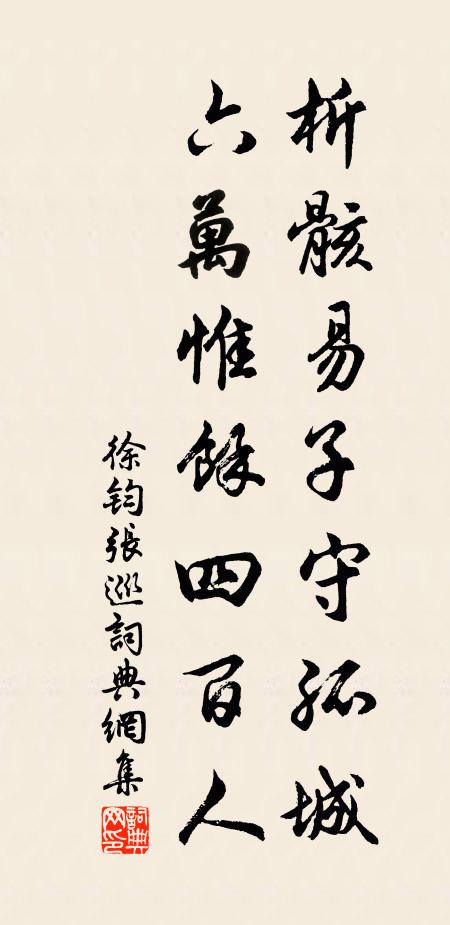 析骸易子守孤城
六萬惟餘四百人
徐鈞張巡詞典網集
詞典网印